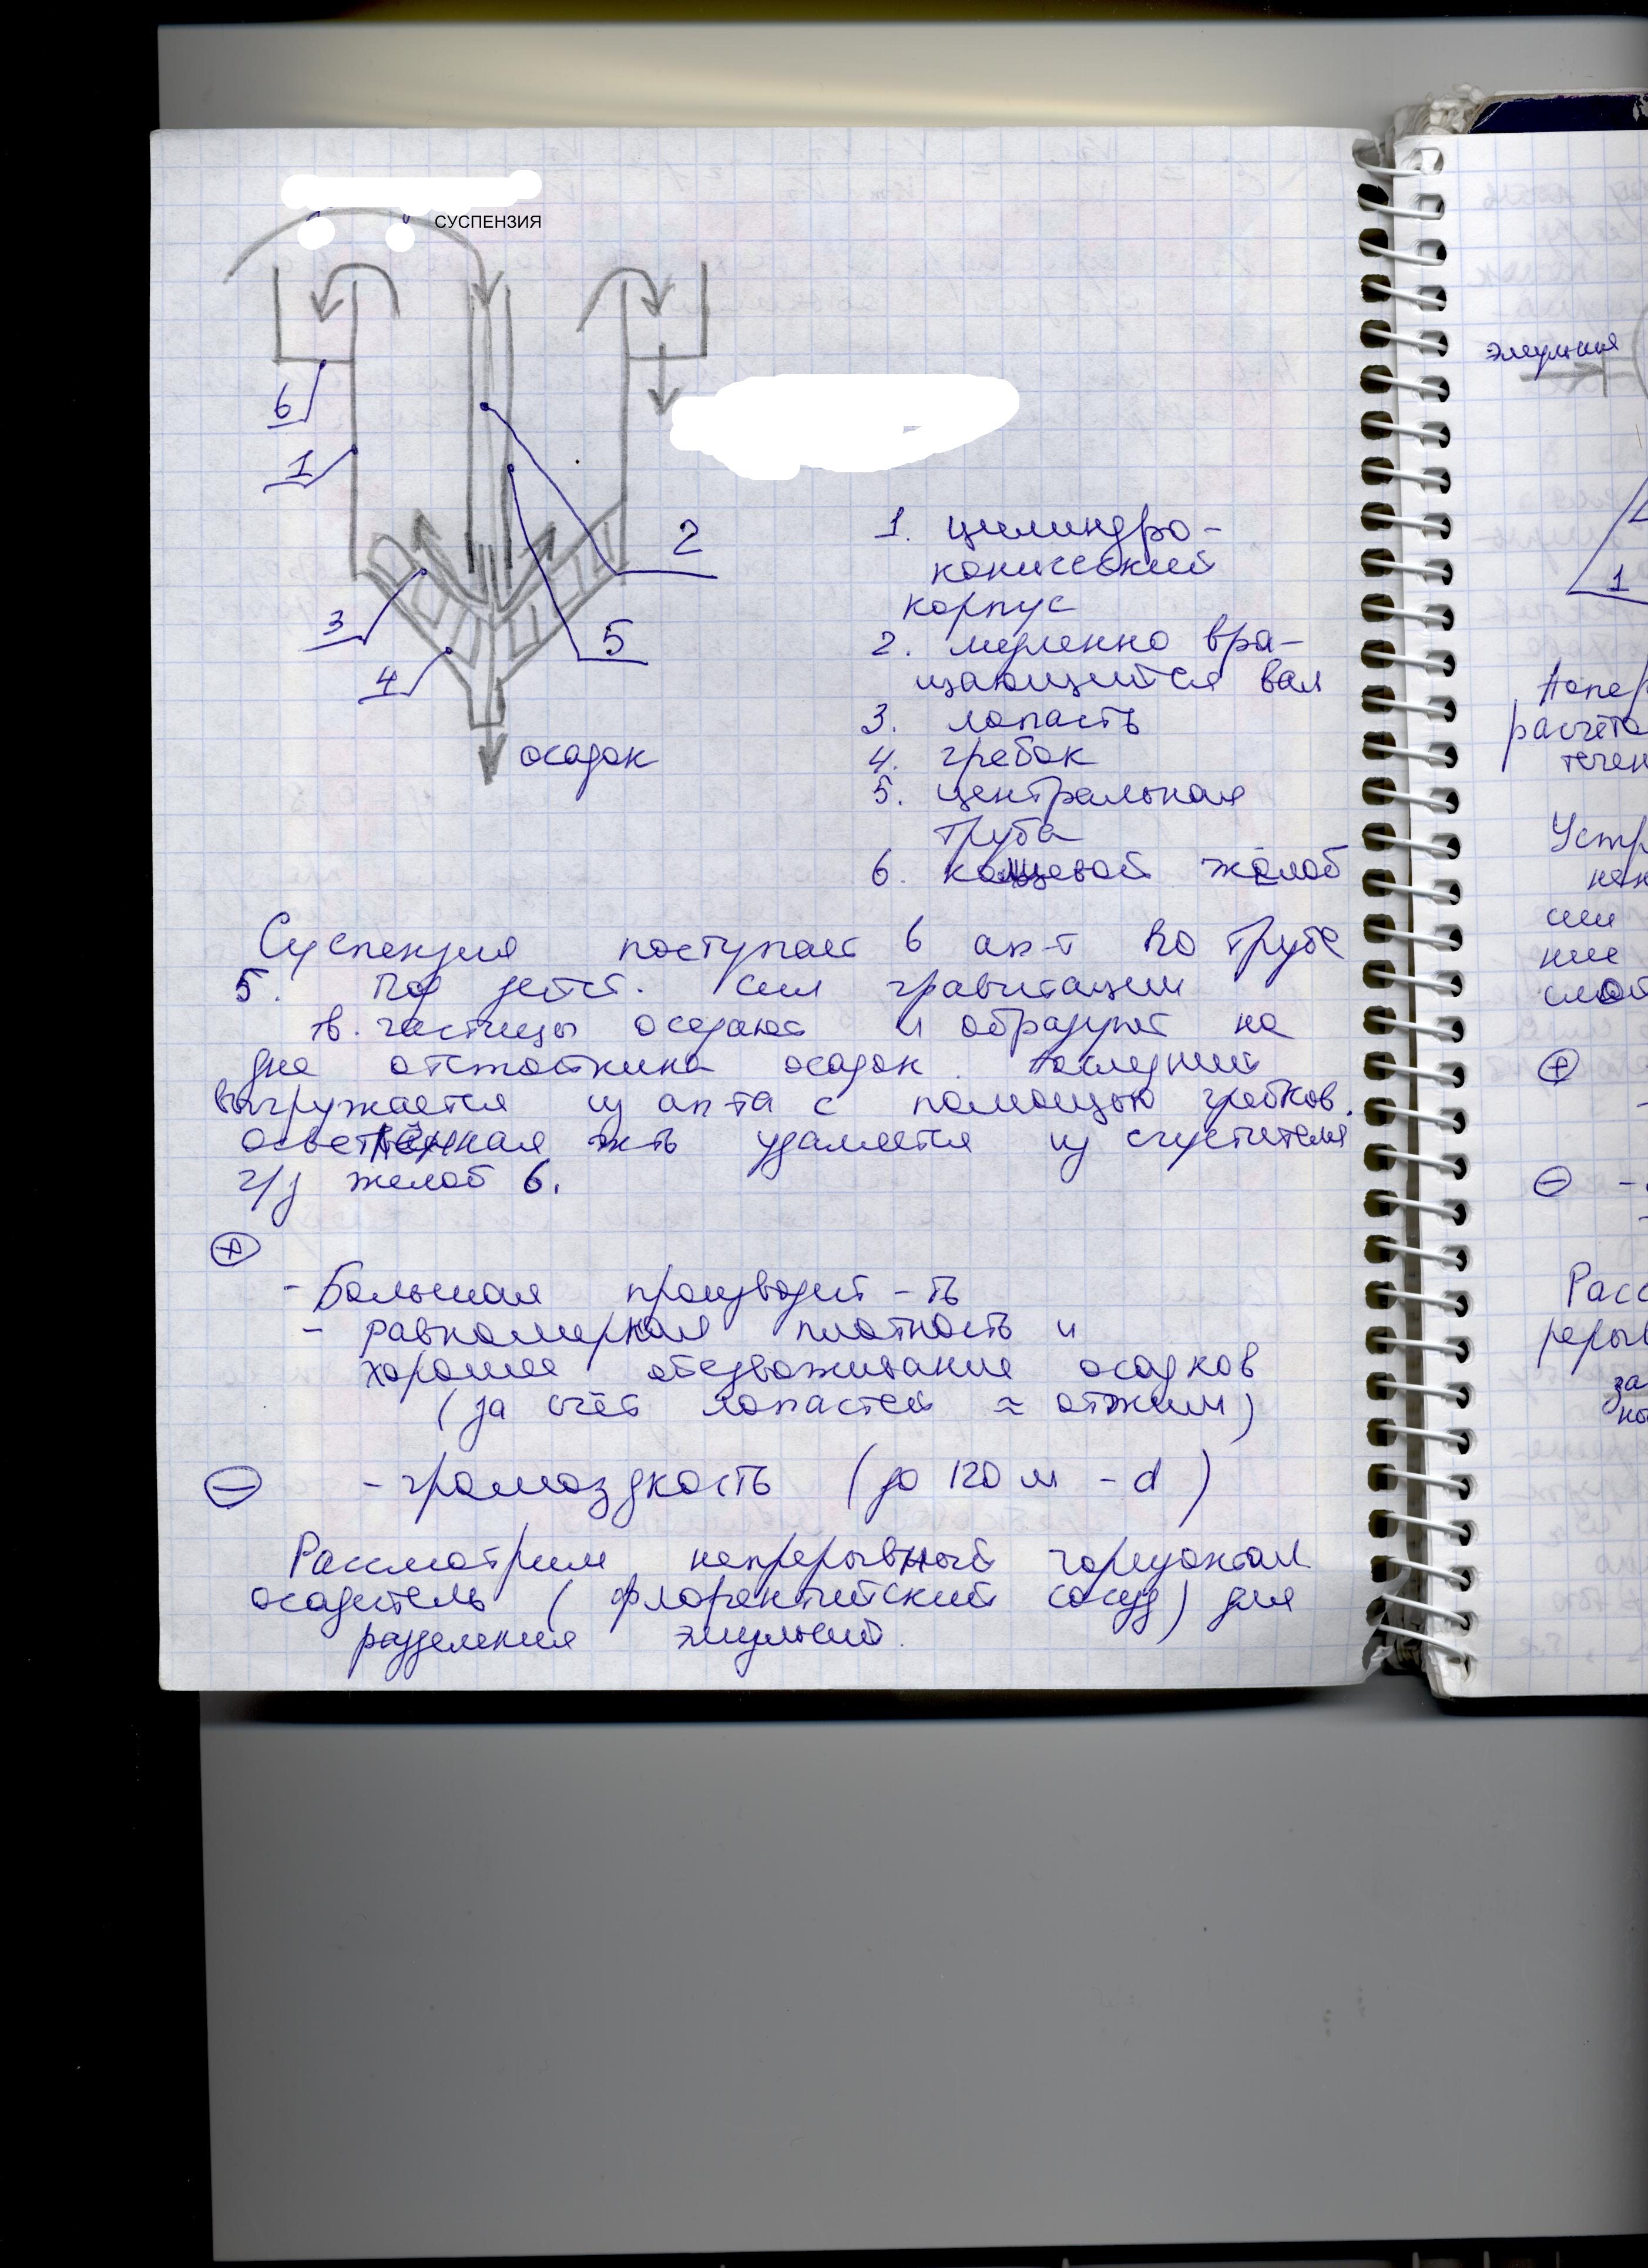 СУСПЕНЗИЯ
6
1
2
3
5
4
осадок
1. цилиндро-
конический
корпус
2. медленно вра-
щающийся вал
3. лопасть
4. гребок
5. центральная
труба
6. кольцевой жёлоб
Суспензия поступает в ап-т по трубе
5. Под дейст. сил гравитации
тв. частицы оседают и образуют на
дне отстойника осадок. Последний
выгружается из ап-та с помощью гребков.
Осветлённая ж-ть удаляется из сгустителя
ч/з желоб 6.
+
- Большая производит-ть
- равномерная плотность и
хорошее обезвоживание осадков
(за счёт лопастей ≈ отжим)
- - громоздкость (до 120 м - d)
Рассмотрим непрерывный горизонтал
осадитель (флорентийский сосуд) для
разделения эмульсий.
эмульсия
1
расчёта
течен
Устр
сии
ние
слоя
+
-
Расс
рерыв
за